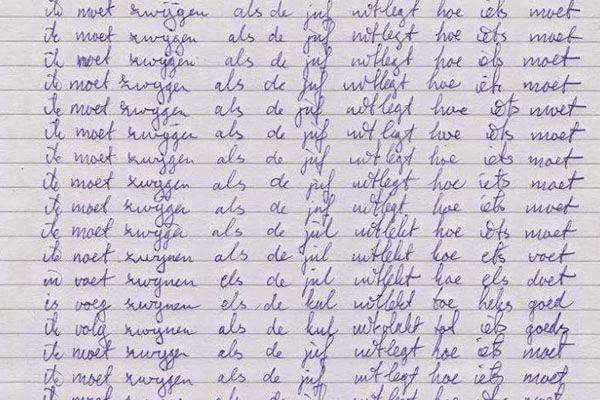 ik moet zwijgen als de juf uitlegt hoe iets moet
ik moet zwijgen als de juf uitlegt hoe iets moet
ik moet zwijgen als de juf uitlegt hoe iets moet
ik moet zwijgen als de juf uitlegt hoe iets moet
ik moet zwijgen als de juf uitlegt hoe iets moet
ik moet zwijgen als de juf uitlegt hoe iets moet
ik moet zwijgen als de juf uitlegt hoe iets moet
ik moet zwijgen als de juf uitlegt hoe iets moet
ik moet zwijgen als de juf uitlegt hoe iets moet
ik moet zwijgen als de jul uitlekt hoe iets moet
ik noet zwynen als de jul uitlekt hoe ets voet
in voet zwynen els de jul uitlekt hoe els doet
is voeg zwynen els de kul uitlekt toe heks goed
ik volg zwynen als de kul uitplukt tot iets goeds
ik moet zwijgen als de juf uitlegt hoe iets moet
ik moet zwijgen als de juf uitlegt hoe iets moet